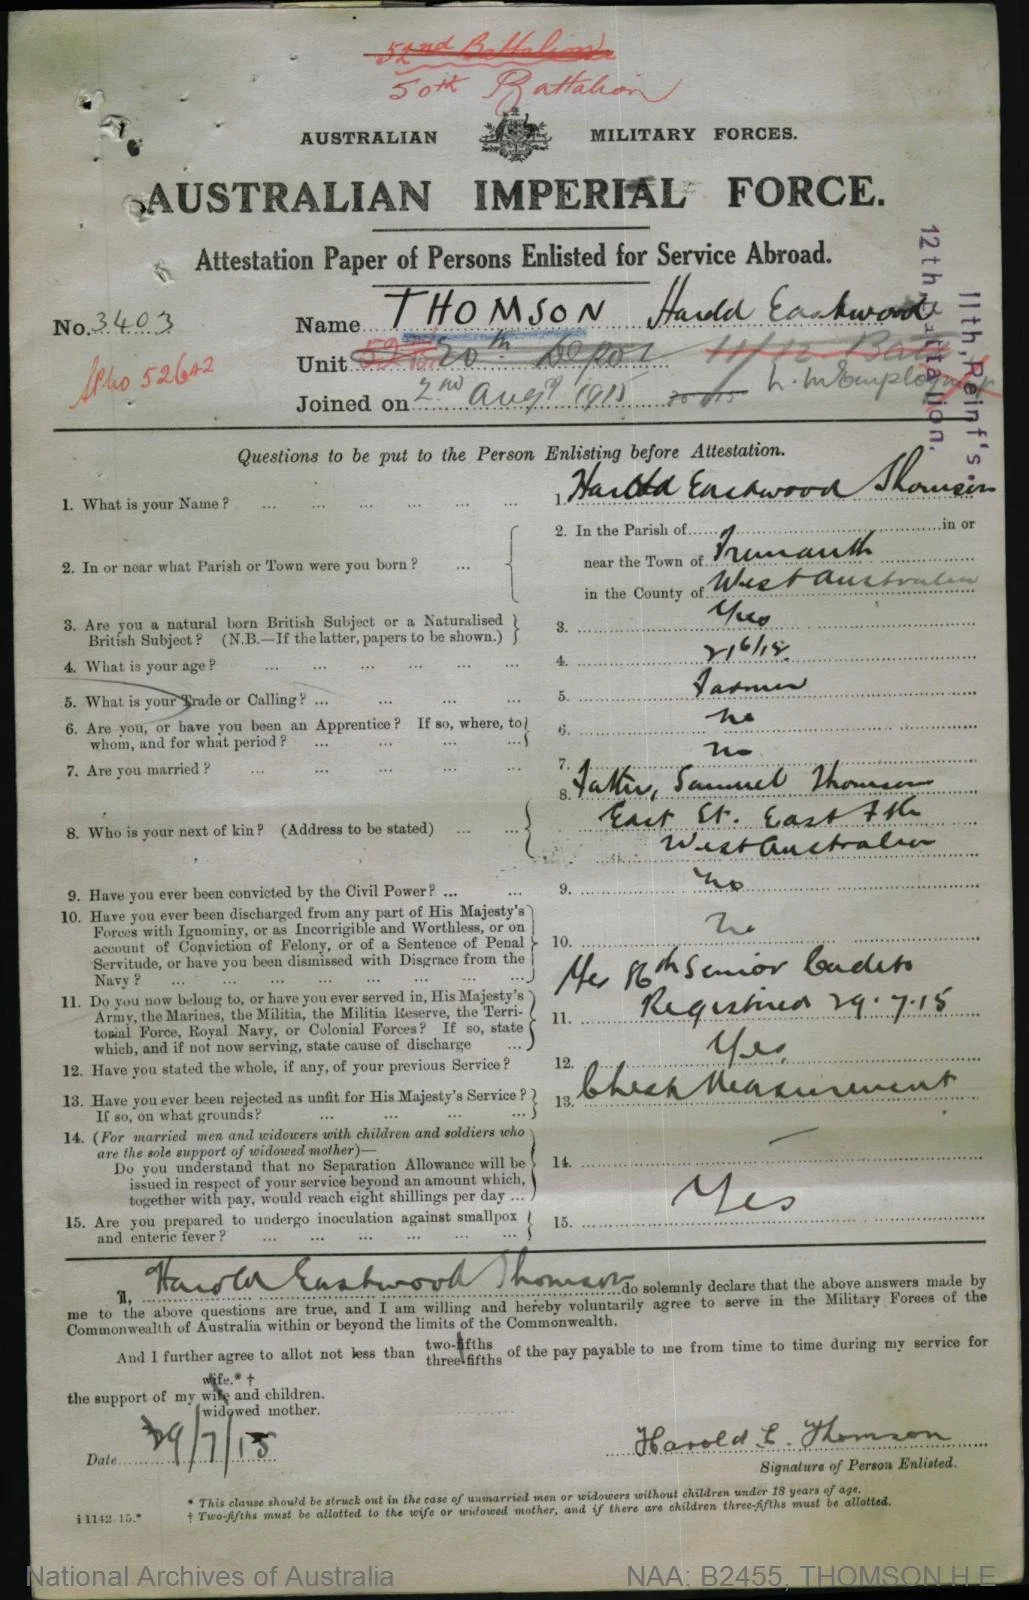 52nd Battalion
50th Battalion
AUSTRALIAN MILITARY FORCES.
AUSTRALIAN IMPERIAL FORCE.
Attestation Paper of Persons Enlisted for Service Abroad.
11th, Reinf's.
12th, Battalion.
No. 3403
Name THOMSON Harold Eastwood
52642
Unit 52nd 20th Depot 11/12 Batt
Joined on 2nd Augst 1915
Questions to be put to the Person Enlisting before Attestation.
1. What is your Name? ... ... ... ... ... 1. Harold Eastwood Thomson
2. In or near what Parish or Town were you born? ... 2. In the Parish of in or
near the Town of Fremantle
in the County of West Australia
3. Are you a natural born British Subject or a Naturalised
British Subject? (N.B.—If the latter, papers to be shown.) 3. Yes
4. What is your age? ... ... ... ... ... 4. 21 6/12
5. What is your Trade or Calling? ... ... ... ... 5. Farmer
6. Are you, or have you been an Apprentice? If so, where, to
whom, and for what period? ... ... ... ... 6. No
7. Are you married? ... ... ... ... ... 7. No
8. Who is your next of kin? (Address to be stated) ... ... 8. Father, Samuel Thomson
East St. East Ftle
West Australia
9. Have you ever been convicted by the Civil Power? ... ... 9. No
10. Have you ever been discharged from any part of His Majesty's
Forces with Ignominy, or as Incorrigible and Worthless, or on
account of Conviction of Felony, or of a Sentence of Penal
Servitude, or have you been dismissed with Disgrace from the
Navy? ... ... ... ... ... ... ... 10. No
11. Do you now belong to, or have you ever served in, His Majesty's
Army, the Marines, the Militia, the Militia Reserve, the Terri-
torial Force, Royal Navy, or Colonial Forces? If so, state
which, and if not now serving, state cause of discharge ... 11. Yes 86th Senior Cadets
Registered 29.7.15
12. Have you stated the whole, if any, of your previous Service? 12. Yes
13. Have you ever been rejected as unfit for His Majesty's Service?
If so, on what grounds? ... ... ... ... 13. Chest Measurement
14. (For married men and widowers with children and soldiers who
are the sole support of widowed mother)—
Do you understand that no Separation Allowance will be
issued in respect of your service beyond an amount which,
together with pay, would reach eight shillings per day ... 14. —
15. Are you prepared to undergo inoculation against smallpox
and enteric fever? ... ... ... ... ... 15. Yes
I, Harold Eastwood Thomson do solemnly declare that the above answers made by
me to the above questions are true, and I am willing and hereby voluntarily agree to serve in the Military Forces of the
Commonwealth of Australia within or beyond the limits of the Commonwealth.
And I further agree to allot not less than two-fifths three-fifths of the pay payable to me from time to time during my service for
wife.* †
the support of my wife and children.
widowed mother.
Date 29/7/15
Harold E. Thomson
Signature of Person Enlisted.
* This clause should be struck out in the case of unmarried men or widowers without children under 18 years of age.
i 1142. 15.* † Two-fifths must be allotted to the wife or widowed mother, and if there are children three-fifths must be allotted.
National Archives of Australia NAA: B2455, THOMSON H E